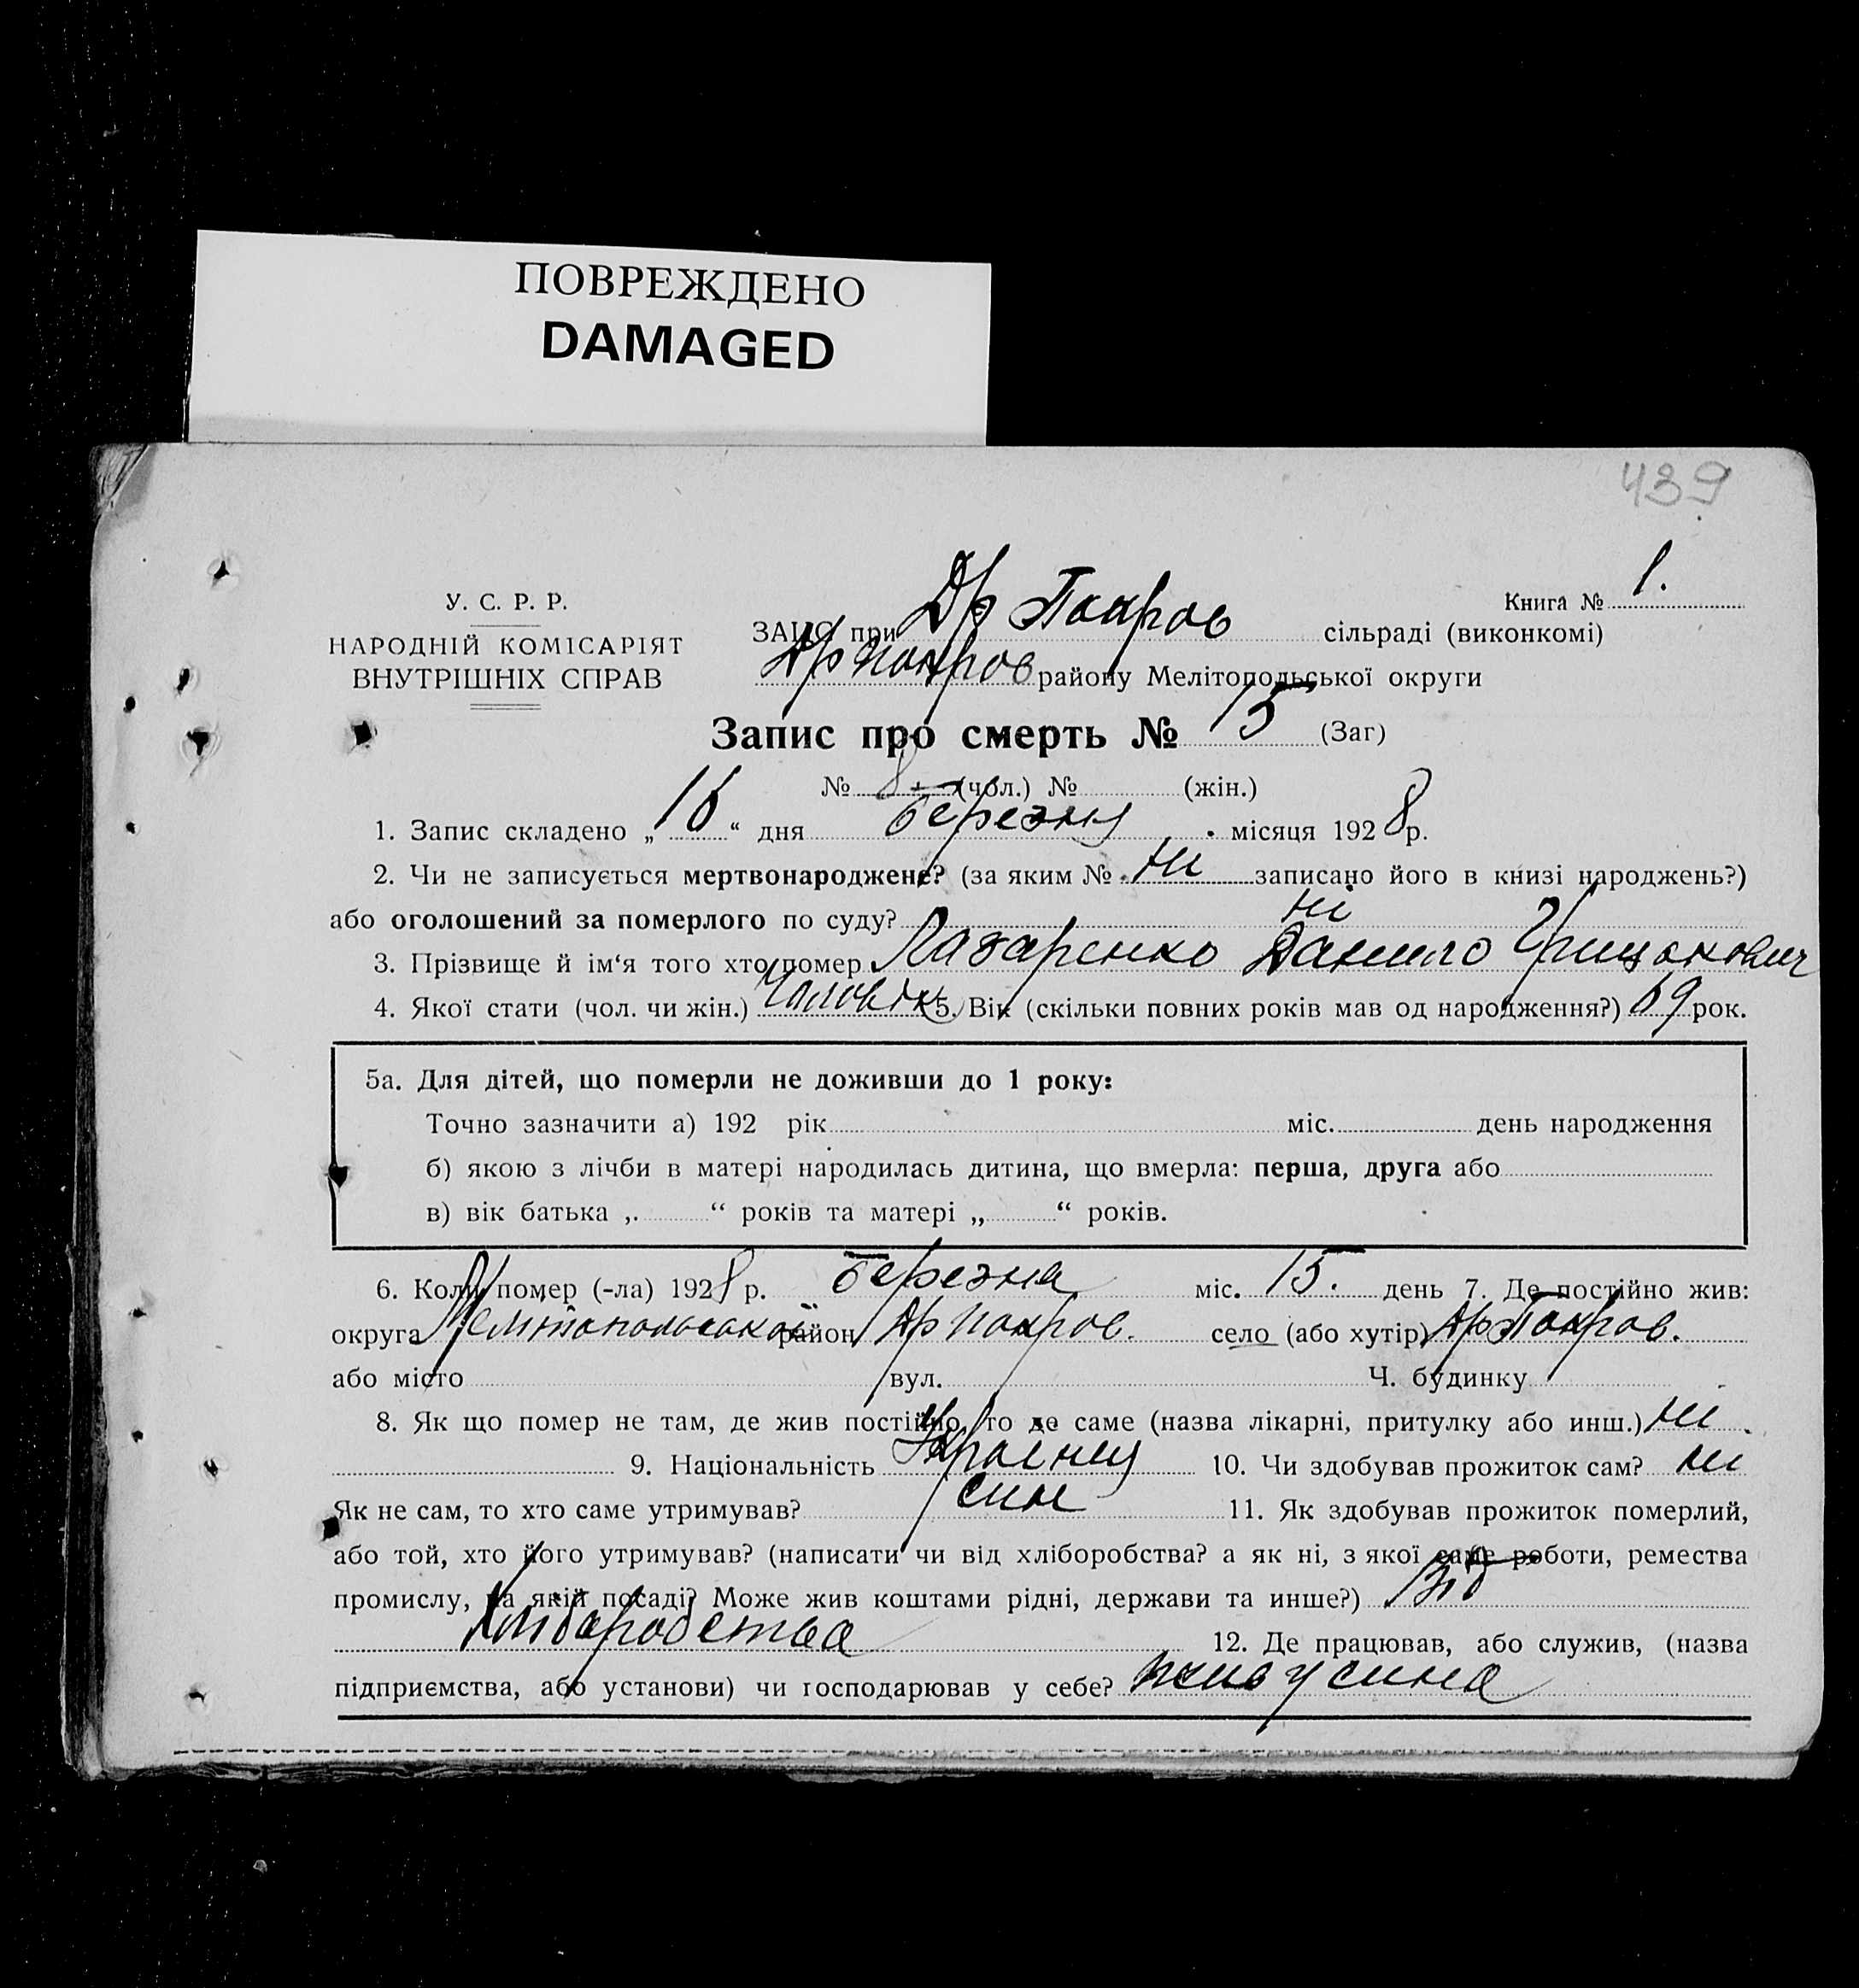 ПОВРЕЖДЕНО
DAMAGED
439
У. С. Р. Р.
НАРОДНІЙ КОМІСАРІЯТ
ВНУТРІШНІХ СПРАВ
Книга № 1.
ЗАЦС при Др Покров сільраді (виконкомі)
Др Покров району Мелітопольської округи
Запис про смерть № 15 (Заг)
№ 8 (чол.) № (жін.)
1. Запис складено „16“ дня Березня місяця 1928 р.
2. Чи не записується мертвонароджене? (за яким № ні записано його в книзі народжень?)
або оголошений за померлого по суду? ні
3. Прізвище й ім‘я того хто помер Лазаренко Данило
4. Якої стати (чол. чи жін.) Чоловік 5. Вік (скільки повних років мав од народження?) 69 рок.
5а. Для дітей, що померли не доживши до 1 року:
Точно зазначити а) 192 рік міс. день народження
б) якою з лічби в матері народилась дитина, що вмерла: перша, друга або
в) вік батька „ “ років та матері „ “ років.
6. Коли помер (-ла) 1928 р. Березня міс. 15. день 7. Де постійно жив:
округа Мелітопольської район Др Покров. село (або хутір) Др Покров.
або місто вул. Ч. будинку
8. Як що помер не там, де жив постійно, то де саме (назва лікарні, притулку або инш.) ні
9. Національність Украінец 10. Чи здобував прожиток сам? ні
Як не сам, то хто саме утримував? син 11. Як здобував прожиток померлий,
або той, хто його утримував? (написати чи від хліборобства? а як ні, з якої саме роботи, ремества
промислу, на якій посаді? Може жив коштами рідні, держави та инше?) Від
хліборобства 12. Де працював, або служив, (назва
підприємства, або установи) чи господарював у себе? жив у сина